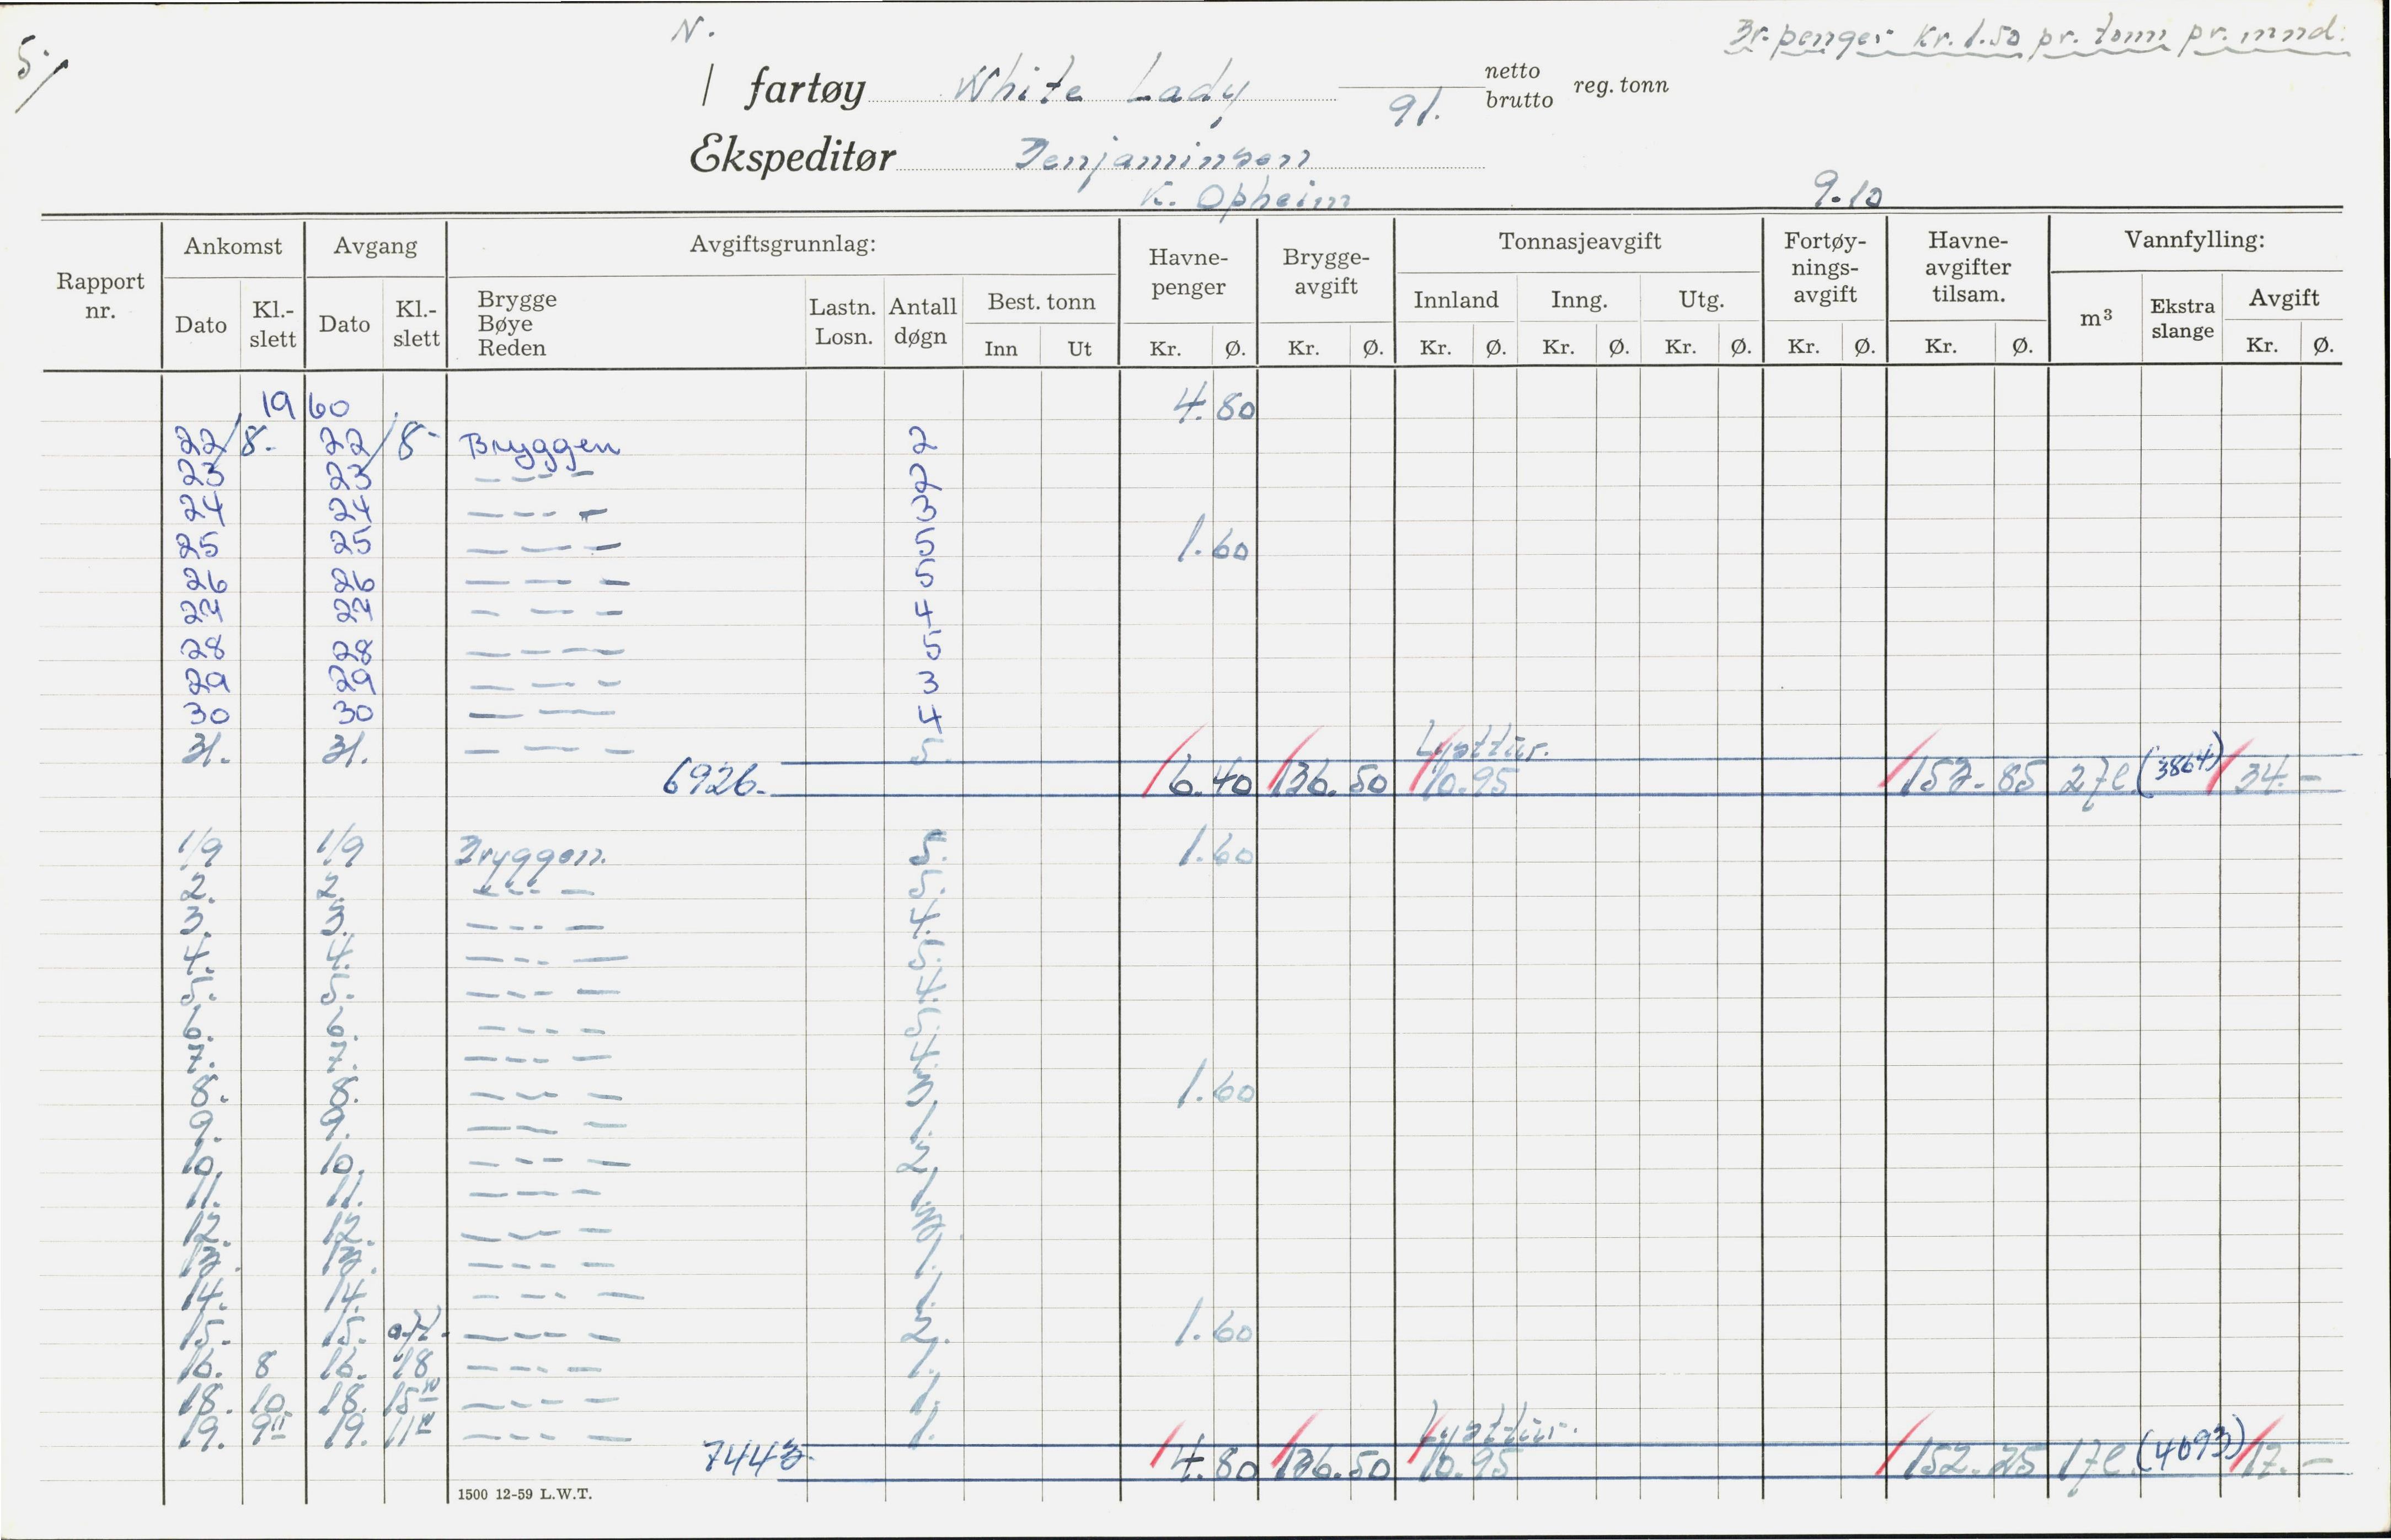 5./
N.
Br.penger Kr. 1.50 pr. tonn pr. mnd.
| fartøy White Lady 91. netto brutto reg. tonn
Ekspeditør Benjaminsen
K. Opheim 9.10
Rapport nr. Ankomst Avgang Avgiftsgrunnlag: Havne-penger Brygge-avgift Tonnasjeavgift Fortøy-nings-avgift Havne-avgifter tilsam. Vannfylling:
Dato Kl.-slett Dato Kl.-slett Brygge Bøye Reden Lastn. Losn. Antall døgn Best. tonn Innland Inng. Utg. m³ Ekstra slange Avgift
Inn Ut Kr. Ø. Kr. Ø. Kr. Ø. Kr. Ø. Kr. Ø. Kr. Ø. Kr. Ø. Kr. Ø.
1960 4.80
22/8. 22/8- Bryggen 2
23 23 - - - - 2
24 24 - - - - 3
25 25 - - - 5 1.60
26 26 - - - 5
27 27 - - - 4
28 28 - - - - 5
29 29 - - - 3
30 30 - - 4
31. 31. - - - 5. Lysttur.
6926.- 6.40 136.50 10.95 153.85 27e. (3864) 34.-
1/9 1/9 Bryggen. 5. 1.60
2. 2. - - - - 5.
3. 3. - - - - 4.
4. 4. - - - - 5.
5. 5. - - - - 4.
6. 6. - - - - 5.
7. 7. - - - - 4.
8. 8. - - - 3. 1.60
9. 9. - - - 1.
10. 10. - - - - 2.
11. 11. - - - 1.
12. 12. - - - 3.
13. 13. - - - - 1.
14. 14. - - - - 1.
15. 15. - - - - 2. 1.60
16. 8 16. 18 - - - - 1.
18. 10 18. 15 - - - - 1.
19. 9 19. 11 - - - - 1. Lysttur.
7443.- 4.80 136.50 10.95 152.25 17e. (4093) 17.-
1500 12-59 L.W.T.